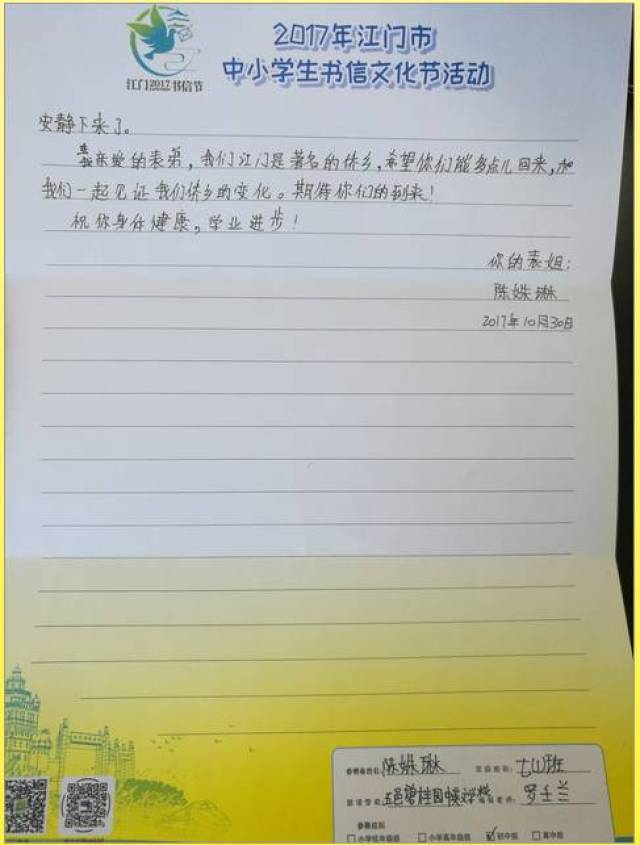 江门2017书信节
2017年江门市
中小学生书信文化节活动
安静下来了。
亲爱的表弟，我们江门是著名的侨乡，希望你们能多点儿回来，和
我们一起见证我们侨乡的变化。期待你们的到来！
祝你身体健康，学业进步！
你的表姐：
陈姝琳
2017年10月30日
陈姝琳
班
五邑碧桂园中英文学校
罗壬兰
参赛组别
小学低年级组 小学高年级组 初中组 高中组